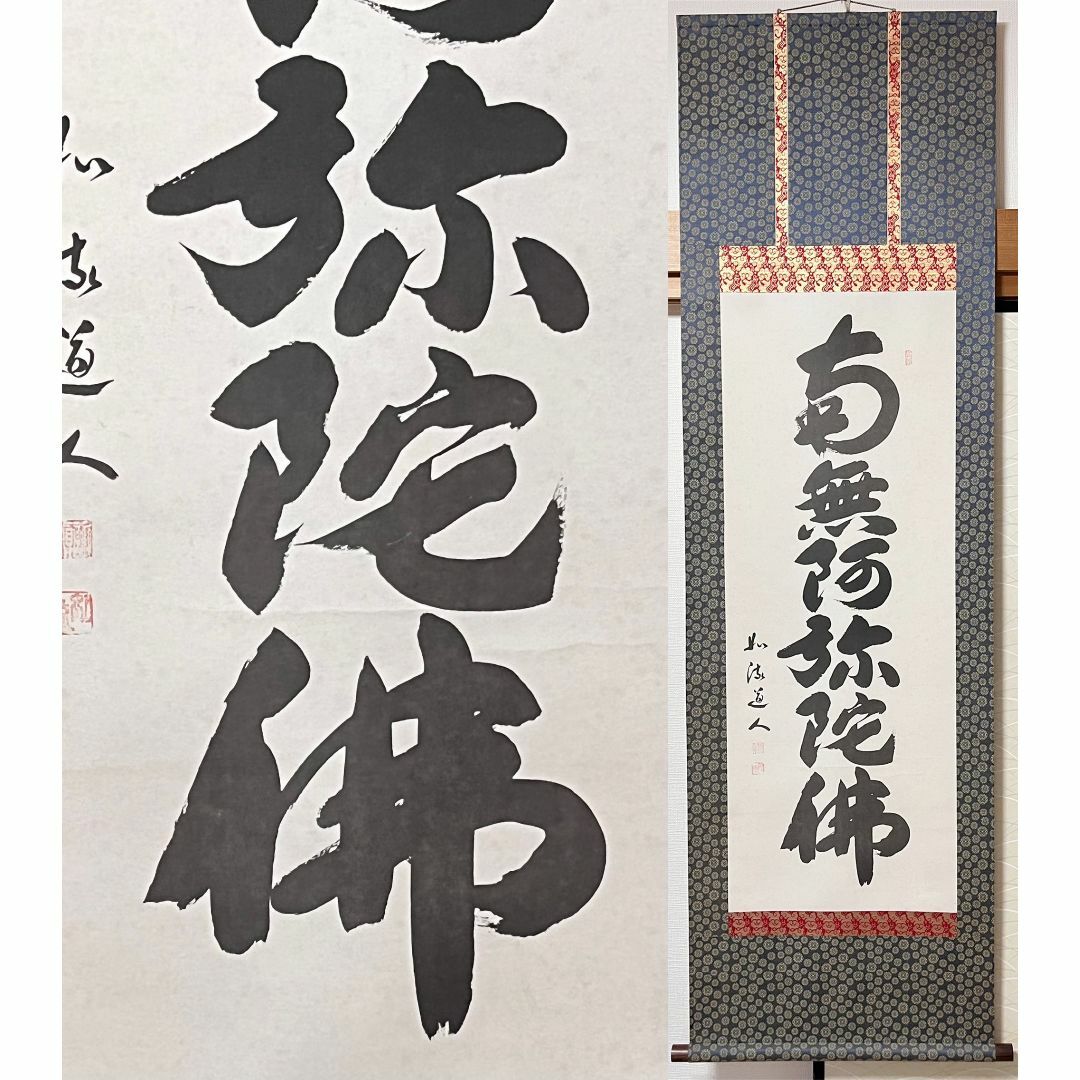 南無阿弥陀佛
如流道人
弥陀佛
道人